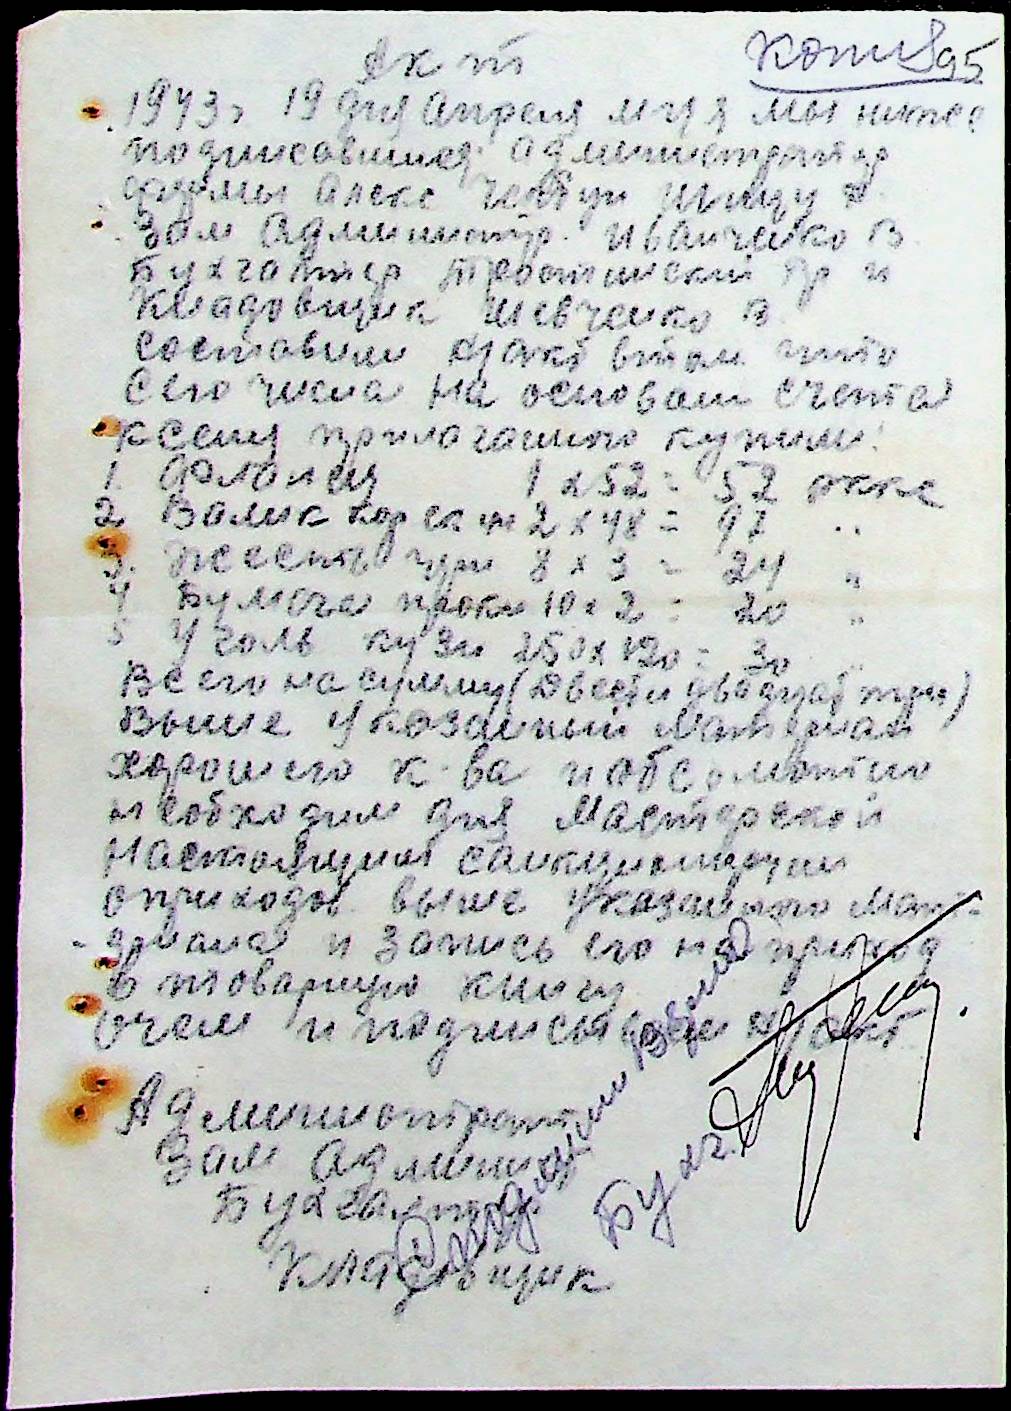 Акт
копия 95
1943 г 19 дня Апреля м-ця мы ниже
подписавшиеся Администратор
фирмы Алекс
Зам Администр. Иванченко В.
Бухгалтер и
Кладовщик Шевченко В.
составили акт втом что
Сего числа на основан счета
ксему прилагаемого купили:
1. Фланец 1 х 52 = 52
2. Валик 2 х 48 = 97 "
3. Жесть 8 х 3 = 24 "
4 Бумага 10 х 2 = 20 "
5 Уголь кузн 250 х 120 = 30 "
Всего на сумму (Двести двадцат три)
Выше Указаный Материал
хорошего к-ва и
необходим для Мастерской
Настоящим
оприходов. выше Указаного мат-
-ериала и Запись его на приход
в товарную книгу
Очем и подписываем акт
Администрат
Зам Админис
Бухгалтер
Кладовщик
Бухг.